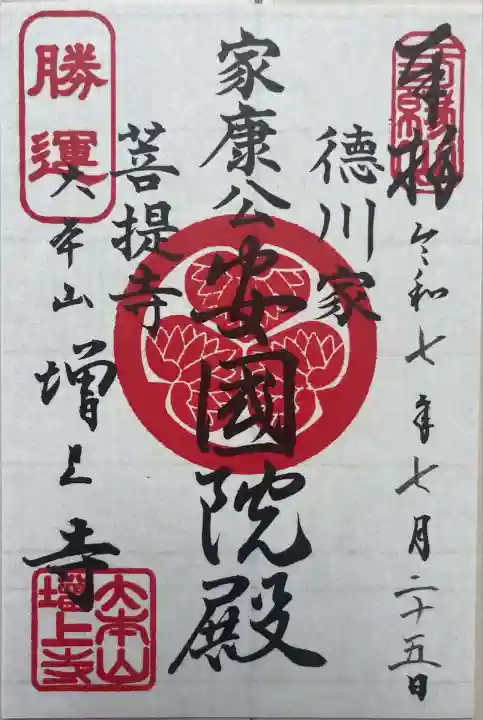 奉拝
令和七年七月二十五日
德川家
家康公
安國院殿
菩提寺
勝運
大本山
増上寺
大本山
増上寺